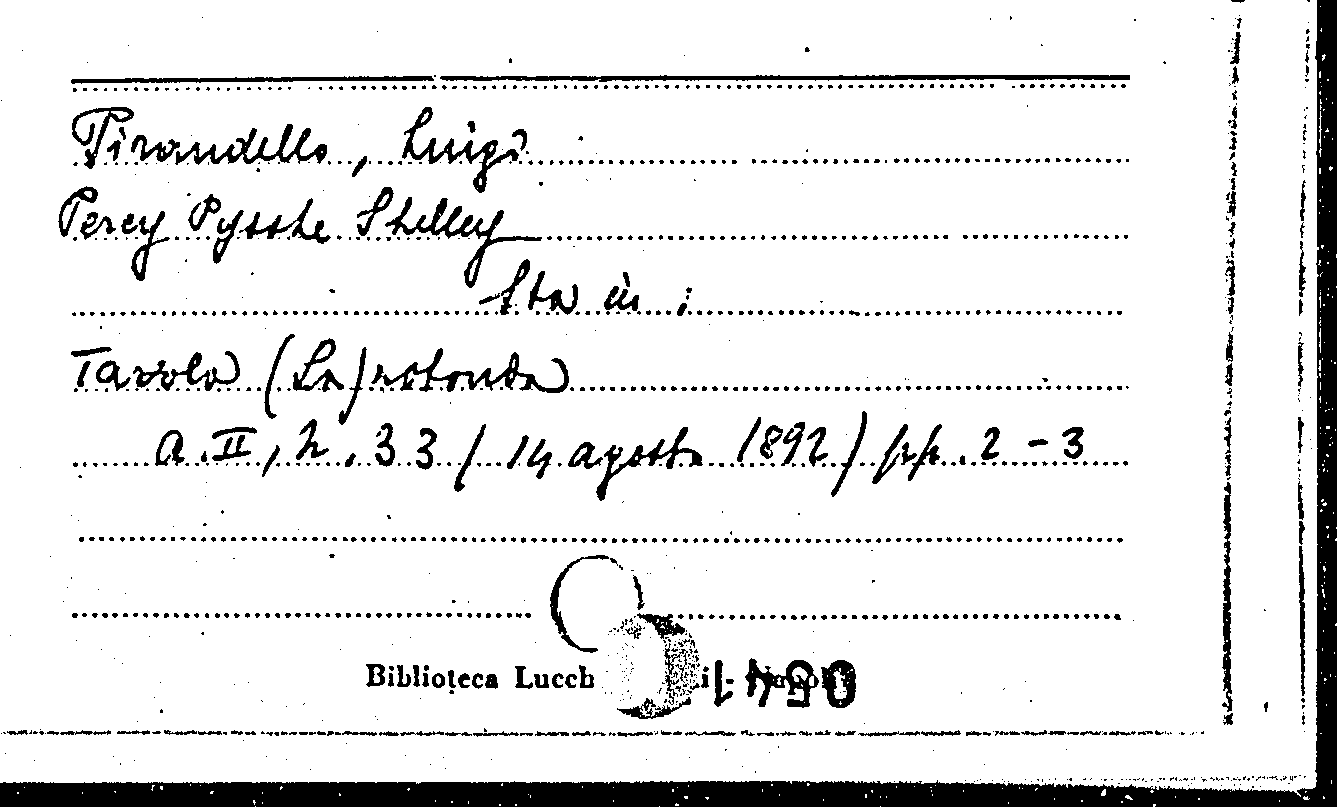 Pirandello, Luigi
Percy Pysshe Shelley
Sta in :
Tavola (La) rotonda
a. II, n. 33 (14 agosto 1892) pp. 2-3
Biblioteca Lucch